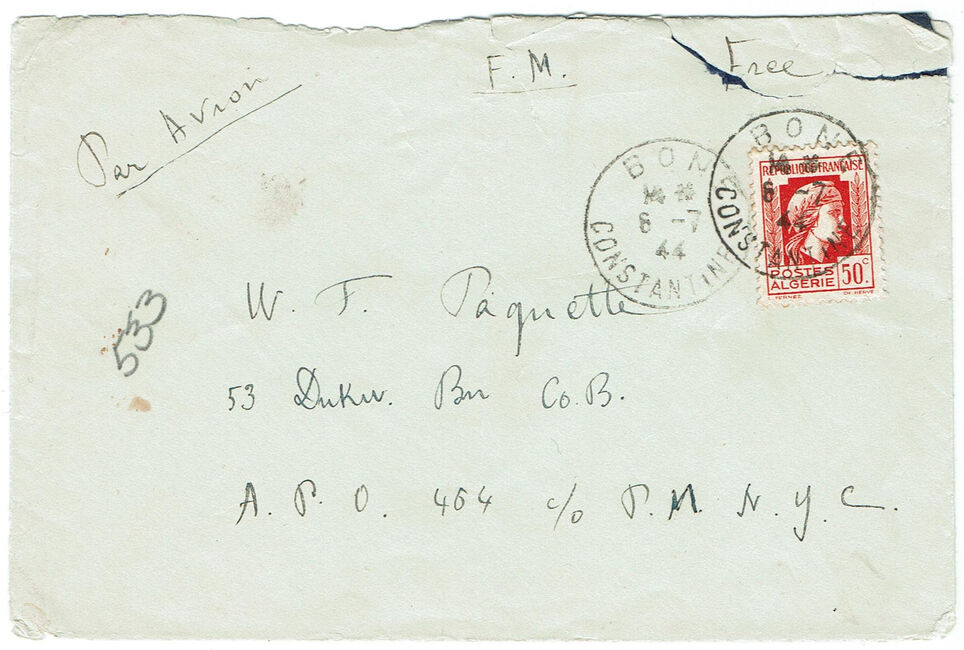 F. M.
Free
Par Avion
BONE
14 *
6 -7
44
CONSTANTINE
BONE
14 *
6 -7
44
CONSTANTINE
REPUBLIQUE FRANÇAISE
POSTES
ALGERIE
50c.
FERNEZ
CH. HERVÉ
W. F. Paquette
533
53 Dukw. Bn Co. B.
A. P. O. 464 c/o P. M. N. Y. C.